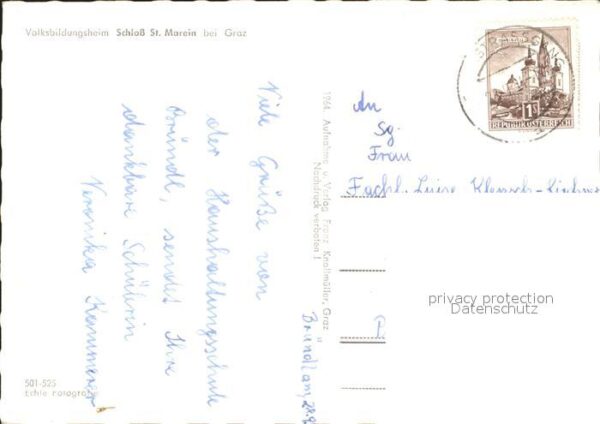 Volksbildungsheim Schloß St. Marein bei Graz
Viele Grüße von
der Haushaltungsschule
Bründl, sendet Ihre
dankbare Schülerin
Veronika Kammerer
1964 Aufnahme u. Verlag Franz Knollmüller, Graz
Nachdruck verboten!
Bründl am
STRASSGANG
1S
REPUBLIK ÖSTERREICH
An
Sg.
Frau
Fachl. Luise
P.
privacy protection
Datenschutz
501-525
Echte Fotografie